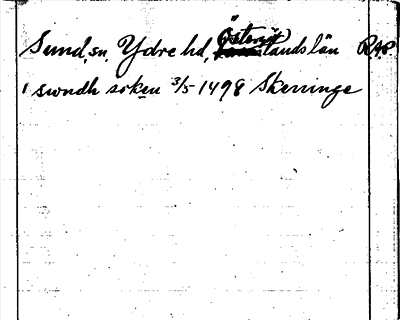 Sund, sn, Ydre hd, Östergötlands län RAP
i swndh soken 3/5 1498 Skerringe